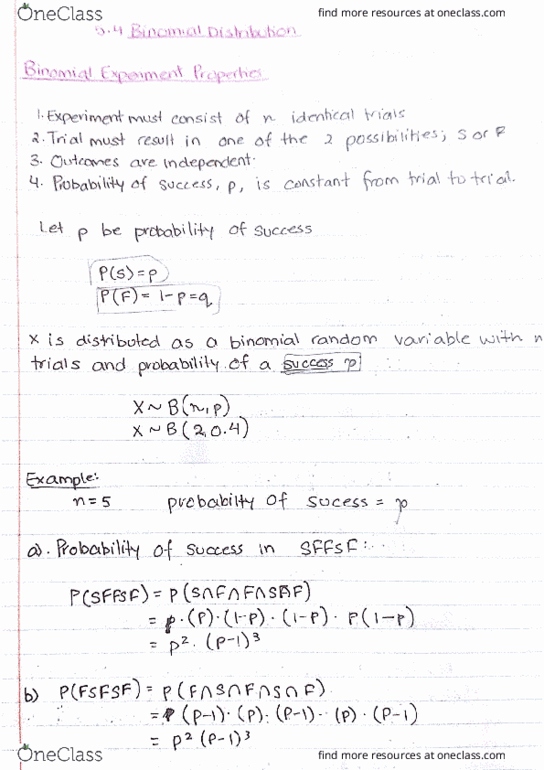 OneClass find more resources at oneclass.com
5.4 Binomial Distribution
Binomial Experiment Properties
1. Experiment must consist of n identical trials
2. Trial must result in one of the 2 possibilities; S or F
3. Outcomes are independent.
4. Probability of success, p, is constant from trial to trial.
Let p be probability of success
P(S)=p
P(F)= 1-p=q
X is distributed as a binomial random variable with n
trials and probability of a success p
X~B(n,p)
X~B(2,0.4)
Example:
n=5 probabilty of sucess = p
a). Probability of success in SFFSF:
P(SFFSF)= P(S∩F∩F∩S∩F)
= p·(P)·(1-P)·(1-P)· P(1-P)
= P²·(P-1)³
b) P(FSFSF)= P(F∩S∩F∩S∩F)
= (P-1)·(P)·(P-1)·(P)·(P-1)
= P²(P-1)³
OneClass find more resources at oneclass.com